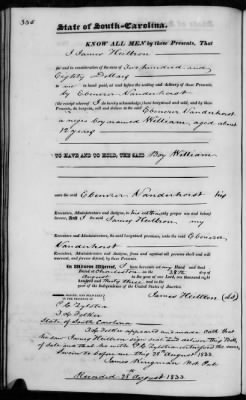 State of South-Carolina.
KNOW ALL MEN by these Presents, That
I James
for and in consideration of the sum of Two hundred and
Eighty Dollars
to me in hand paid, at and before the sealing and delivery of these Presents,
by Ebenezer Vanderhorst
the receipt whereof I do hereby acknowledge, have bargained and sold, and by these
Presents, do bargain, sell and deliver to the said Ebenezer Vanderhorst
a negro boy named William, aged about
12 years
TO HAVE AND TO HOLD, THE SAID Boy William
unto the said Ebenezer Vanderhorst his
Executors, Administrators and Assigns, to his and their only proper use and behoof,
forever. And I the said James my
Executors and Administrators, the said bargained premises, unto the said Ebenezer
Vanderhorst
Executors, Administrators and Assigns, from and against all persons shall and will
warrant, and forever defend by these Presents.
In Witness Whereof, I have hereunto set my Hand and Seal
Dated at Charleston on the 28th day of
August in the year of our Lord one thousand eight
hundred and Thirty Three and in the
year of the Independence of the United States of America.
James (LS)
State of South Carolina
appeared and made Oath that
he saw James sign seal and deliver this Bill
of Sale and that he with witnessed the same.
Sworn to before me this 28th August 1833
James Kingman Not Pub
Recorded 28th August 1833